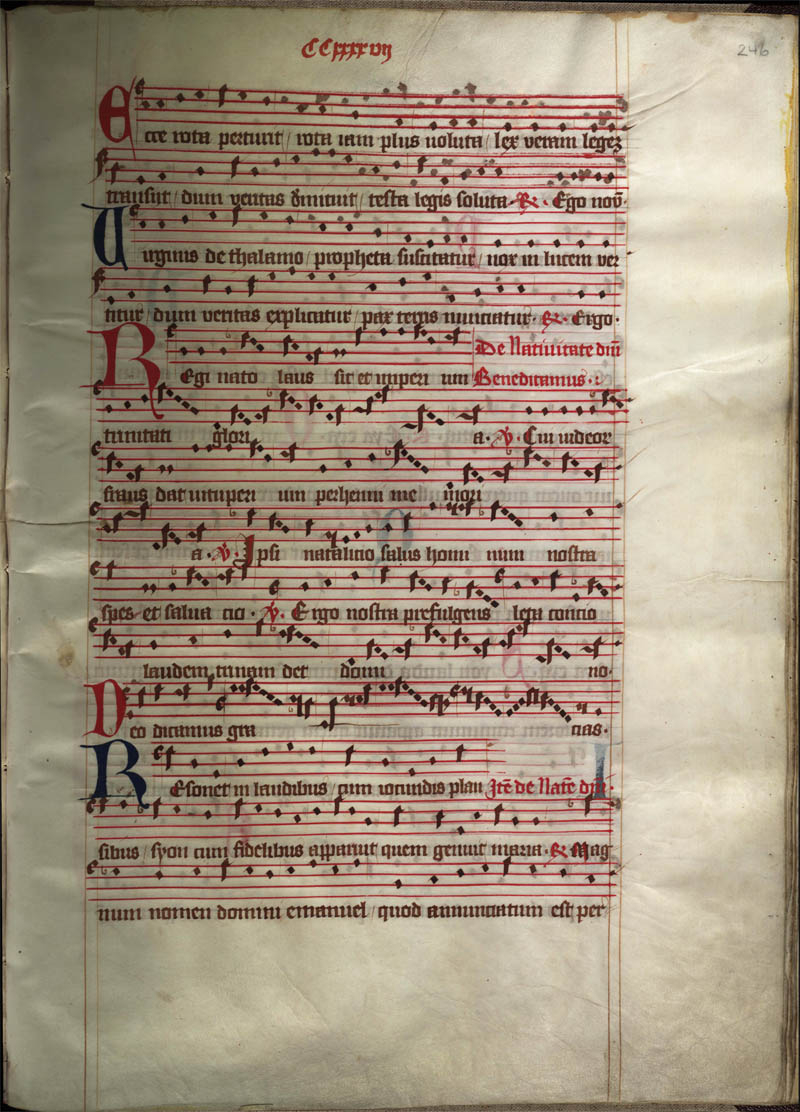 CCxxxxvij
246
Ecce rota perturit / rota iam plus uoluta / lex veram legez
transijt / dum veritas dimittitur / testa legis soluta. R. Ego nouū.
Uirginis de thalamo / propheta suscitatur / nox in lucem ver
titur / dum veritas explicatur / pax terris nunciatur. R. Ergo.
De Natiuitate dn̄i
Regi nato laus sit et imperi um Benedicamus.:
trinitati glori a. V. Cui uideor
strans dat uituperi um perhenni me mori
a. V. Ipsi natalicio salus homi num nostra
spes et salua cio. V. Ergo nostra prefulgens leta concio
laudem trinam det domi no.
Deo dicamus gra cias.
Resonet in laudibus / cum iocundis plau Itē de Natē dn̄i.
sibus / syon cum fidelibus apparuit quem genuit maria. R Mag
num nomen domini emanuel / quod annunciatum est per